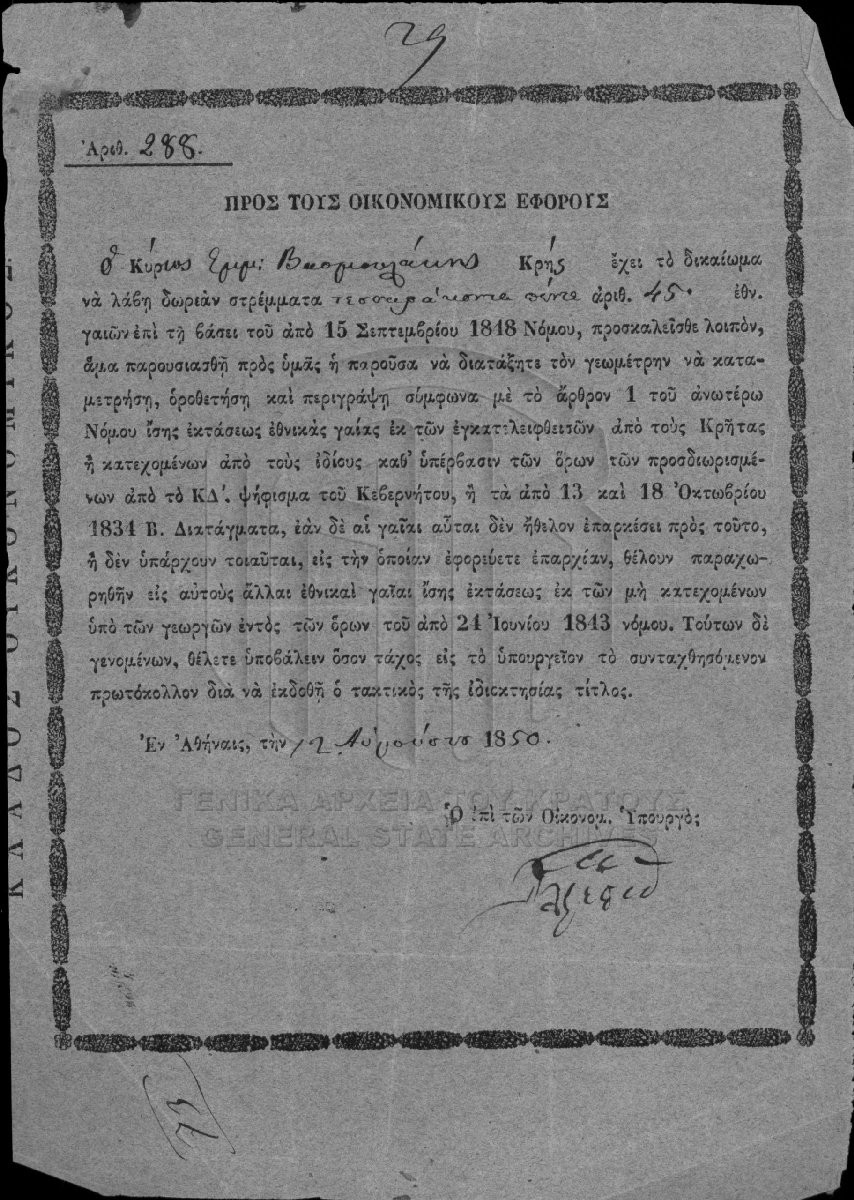 29
Ἀριθ. 288.
ΠΡΟΣ ΤΟΥΣ ΟΙΚΟΝΟΜΙΚΟΥΣ ΕΦΟΡΟΥΣ
Ὁ Κύριος Εμμ: Βασμουλάκης Κρής ἔχει τὸ δικαίωμα
νὰ λάβῃ δωρεὰν στρέμματα τεσσαράκοντα πέντε ἀριθ. 45. ἐθν.
γαιῶν ἐπὶ τῇ βάσει τοῦ ἀπὸ 15 Σεπτεμβρίου 1848 Νόμου, προσκαλεῖσθε λοιπὸν,
ἅμα παρουσιασθῇ πρὸς ὑμᾶς ἡ παροῦσα νὰ διατάξητε τὸν γεωμέτρην νὰ κατα-
μετρήσῃ, ὁροθετήσῃ καὶ περιγράψῃ σύμφωνα μὲ τὸ ἄρθρον 1 τοῦ ἀνωτέρω
Νόμου ἴσης ἐκτάσεως ἐθνικὰς γαίας ἐκ τῶν ἐγκαταλειφθεισῶν ἀπὸ τοὺς Κρῆτας
ἢ κατεχομένων ἀπὸ τοὺς ἰδίους καθ' ὑπέρβασιν τῶν ὅρων τῶν προσδιωρισμέ-
νων ἀπὸ τὸ ΚΔ'. ψήφισμα τοῦ Κεβερνήτου, ἢ τὰ ἀπὸ 13 καὶ 18 Ὀκτωβρίου
1834 Β. Διατάγματα, ἐὰν δὲ αἱ γαῖαι αὗται δὲν ἤθελον ἐπαρκέσει πρὸς τοῦτο,
ἢ δὲν ὑπάρχουν τοιαῦται, εἰς τὴν ὁποίαν ἐφορεύετε ἐπαρχίαν, θέλουν παραχω-
ρηθῆν εἰς αὐτοὺς ἄλλαι ἐθνικαὶ γαῖαι ἴσης ἐκτάσεως ἐκ τῶν μὴ κατεχομένων
ὑπὸ τῶν γεωργῶν ἐντὸς τῶν ὅρων τοῦ ἀπὸ 24 Ἰουνίου 1843 νόμου. Τούτων δὲ
γενομένων, θέλετε ὑποβάλειν ὅσον τάχος εἰς τὸ ὑπουργεῖον τὸ συνταχθησόμενον
πρωτόκολλον διὰ νὰ ἐκδοθῇ ὁ τακτικὸς τῆς ἰδιοκτησίας τίτλος.
Ἐν Ἀθήναις, τὴν 12 Αὐγούστου 1850.
ΓΕΝΙΚΑ ΑΡΧΕΙΑ ΤΟΥ ΚΡΑΤΟΥΣ
GENERAL STATE ARCHIVES
Ὁ ἐπὶ τῶν Οἰκονομ. Ὑπουργὸς
ΚΛΑΔΟΣ ΟΙΚΟΝΟΜΙΚΟΣ